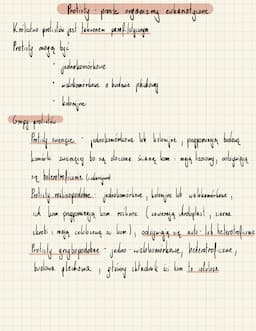 Protisty - proste organizmy eukariotyczne
Królestwo protistów jest taksonem parafiletycznym
Protisty mogą być
jednokomórkowe
wielokomórkowe o budowie plechowej
kolonijne
Grupy protistów
Protisty zwierzęce - jednokomórkowe lub kolonijne, przypominają budową
komórki zwierzęce bo są otoczone ścianą kom i mają, odżywiają
się heterotroficznie (cudzożywne)
Protisty roślinopodobne - jednokomórkowe, kolonijne lub wielokomórkowe,
ich kom przypominają kom roślinne (zawierają chloroplast, ziarna
skrobi i mają celulozową śc kom), odżywiają się auto- lub heterotroficznie
Protisty grzybopodobne - jedno- wielokomórkowe, heterotroficzne,
budowa plechowa, główny składnik śc kom to celuloza